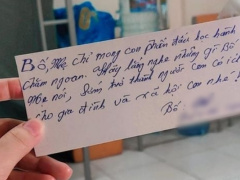 Bố, Mẹ chỉ mong con phấn đấu học hành
chăm ngoan. Hãy lắng nghe những gì Bố,
Mẹ nói, Sớm trở thành người con có ích
cho gia đình và xã hội con nhé!
Bố